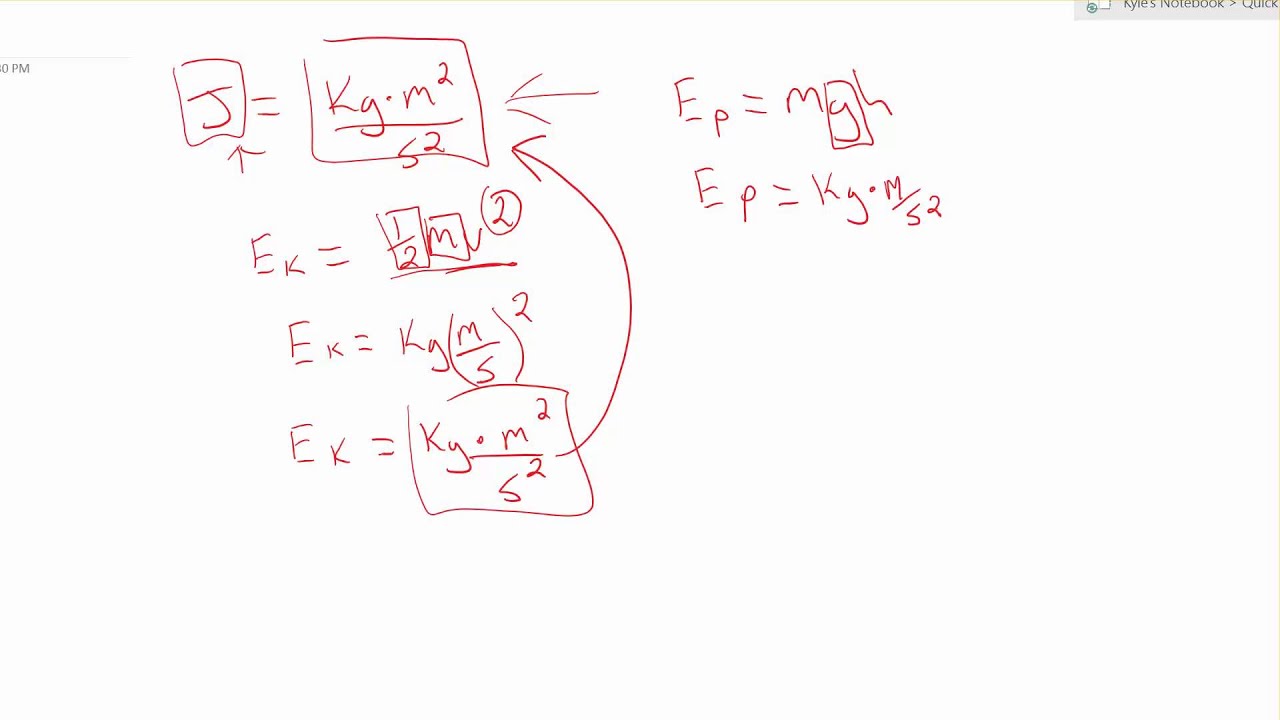 Kyle's Notebook > Quick
30 PM
J = Kg·m²/s²
E_K = ½mv²
E_K = Kg(m/s)²
E_K = Kg·m²/s²
E_p = mgh
E_p = Kg·m/s²